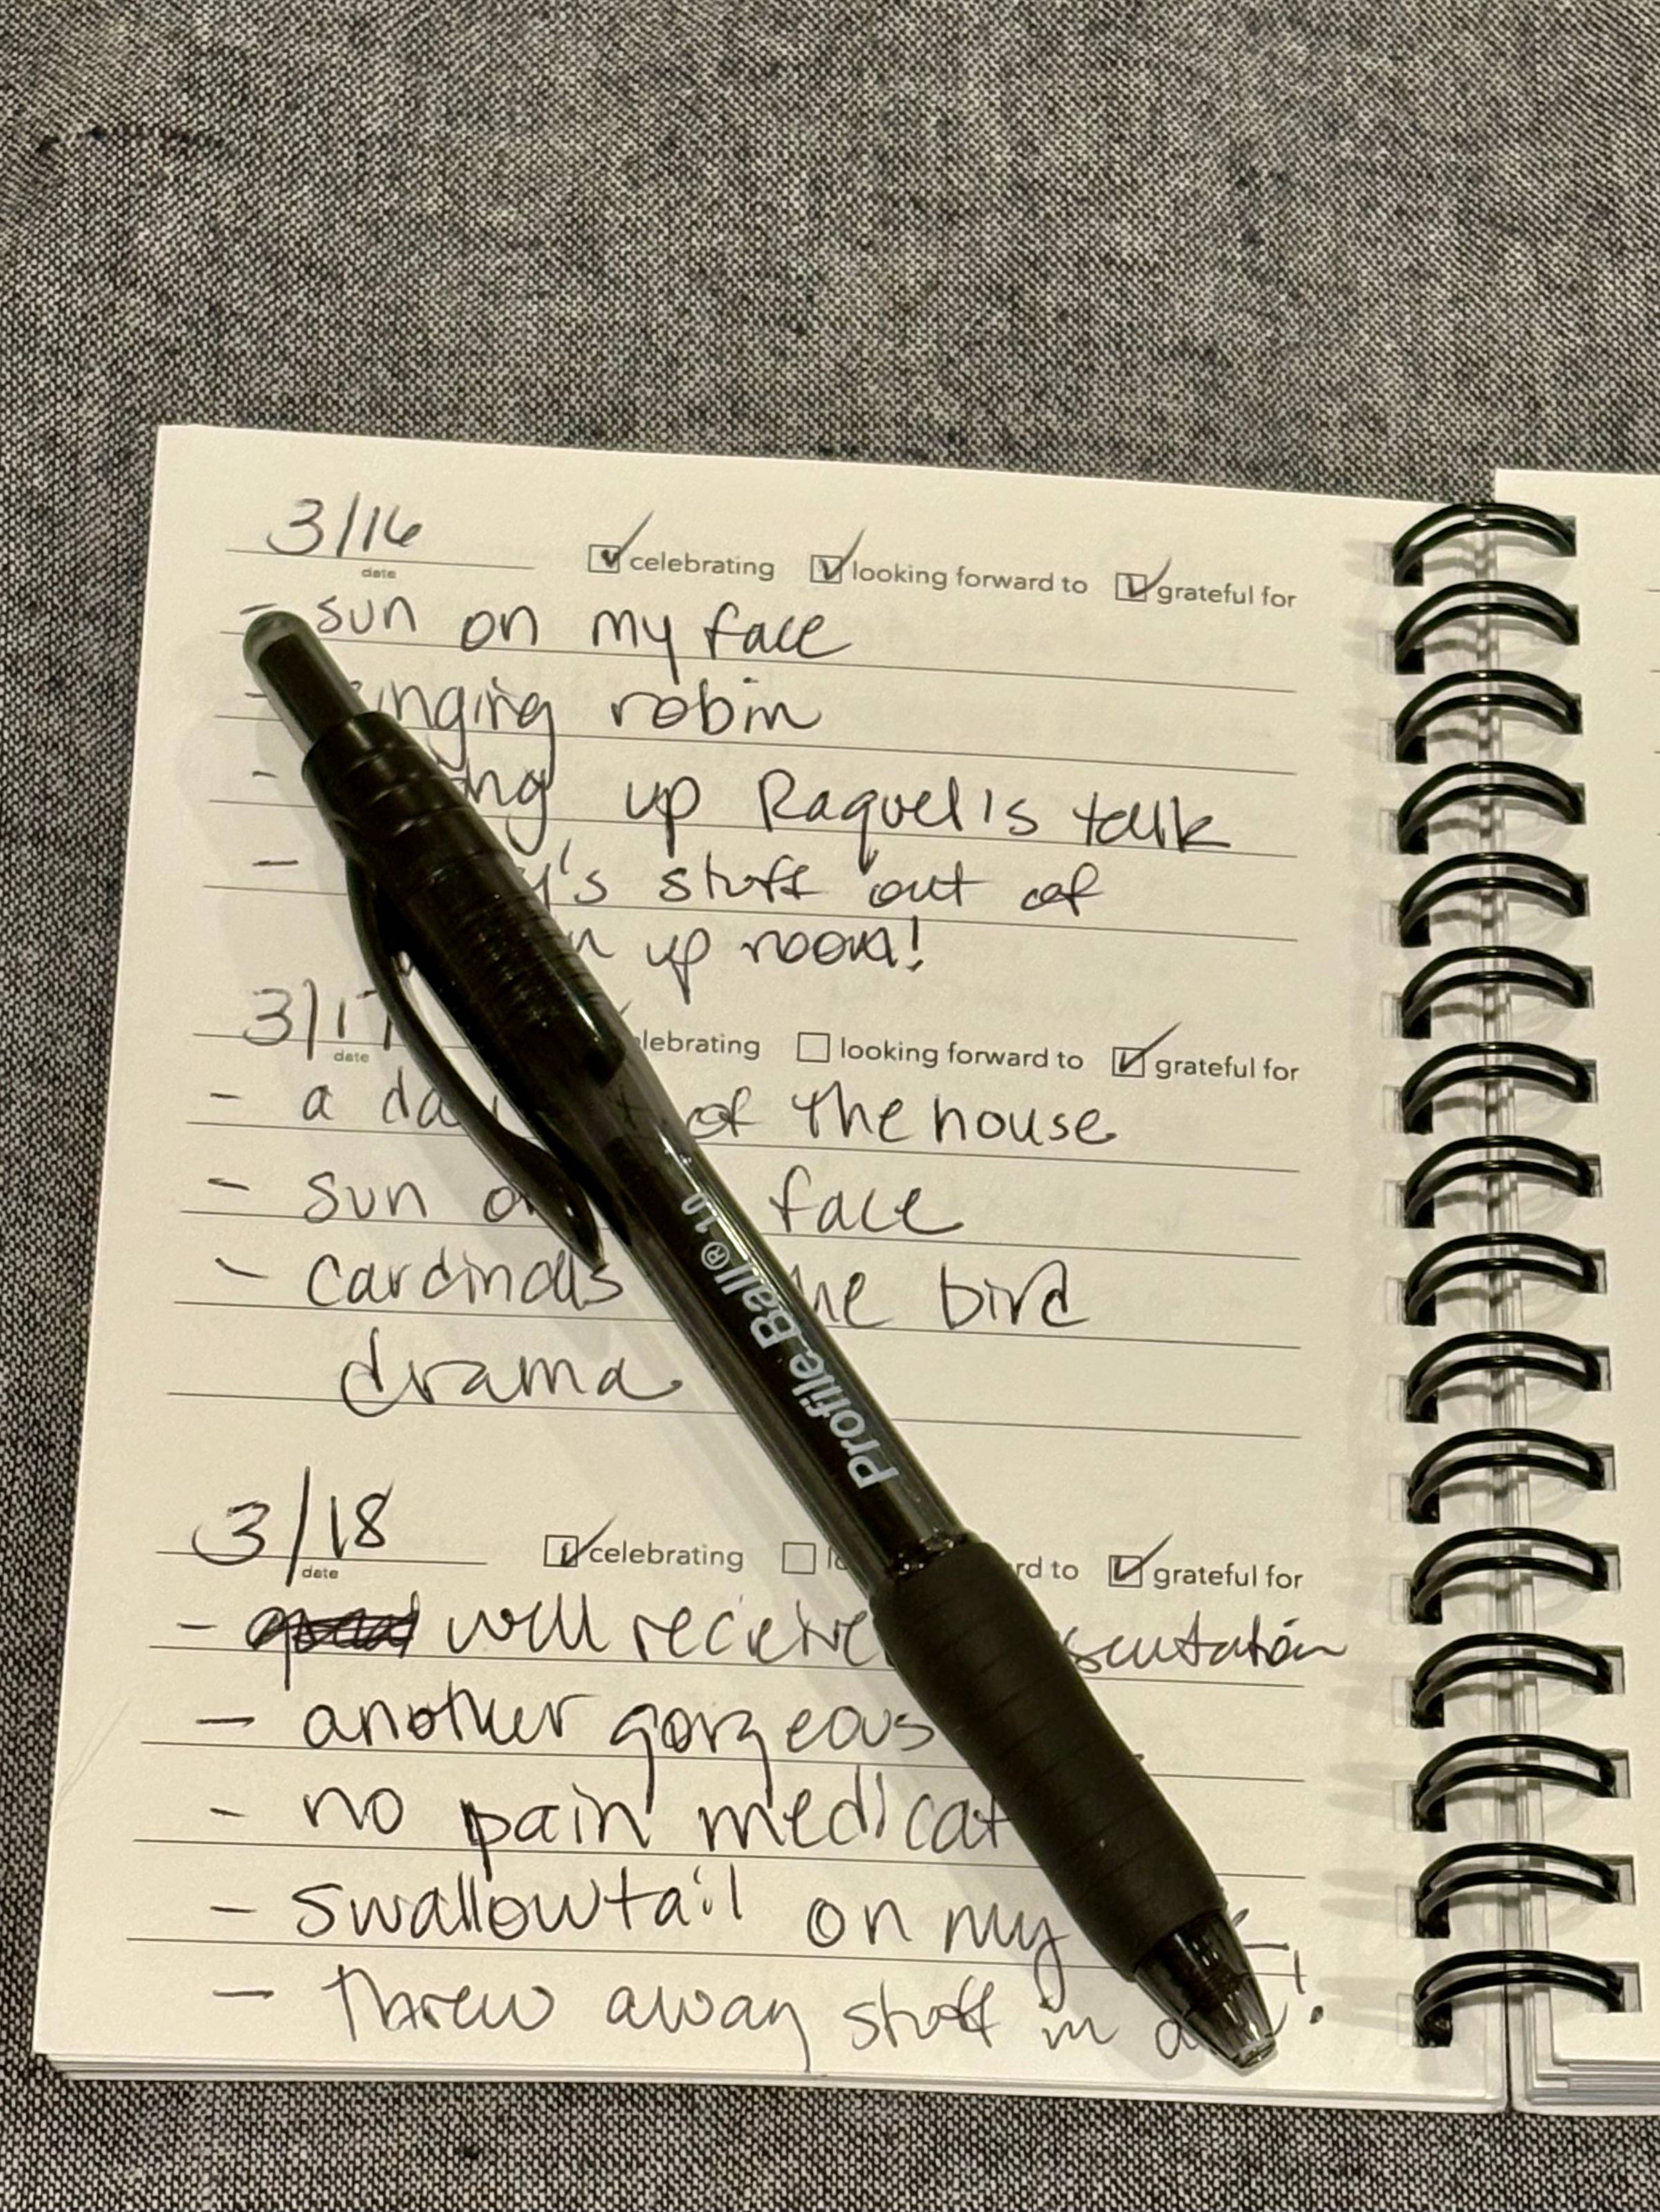 3/16
date
celebrating looking forward to grateful for
- sun on my face
- robin
- up Raquel's talk
- stuff out of
up room!
3/17
date
looking forward to grateful for
- a of the house
- sun face
- cardinals bird
drama
3/18
date
celebrating grateful for
- well
- another gorgeous
- no pain
- swallowtail on my
- threw away stuff in
Profile Ball® 1.0